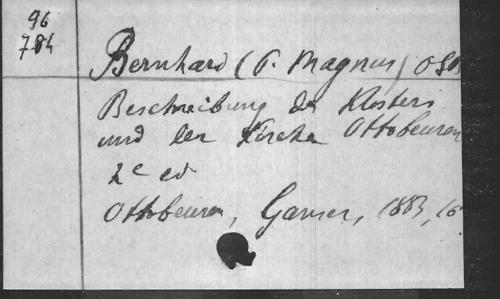 96
784
Bernhard (P. Magnus) OSB
Beschreibung des Klosters
und der Kirche Ottobeuren
2e ed
Ottobeuren, Ganser, 1883, 16